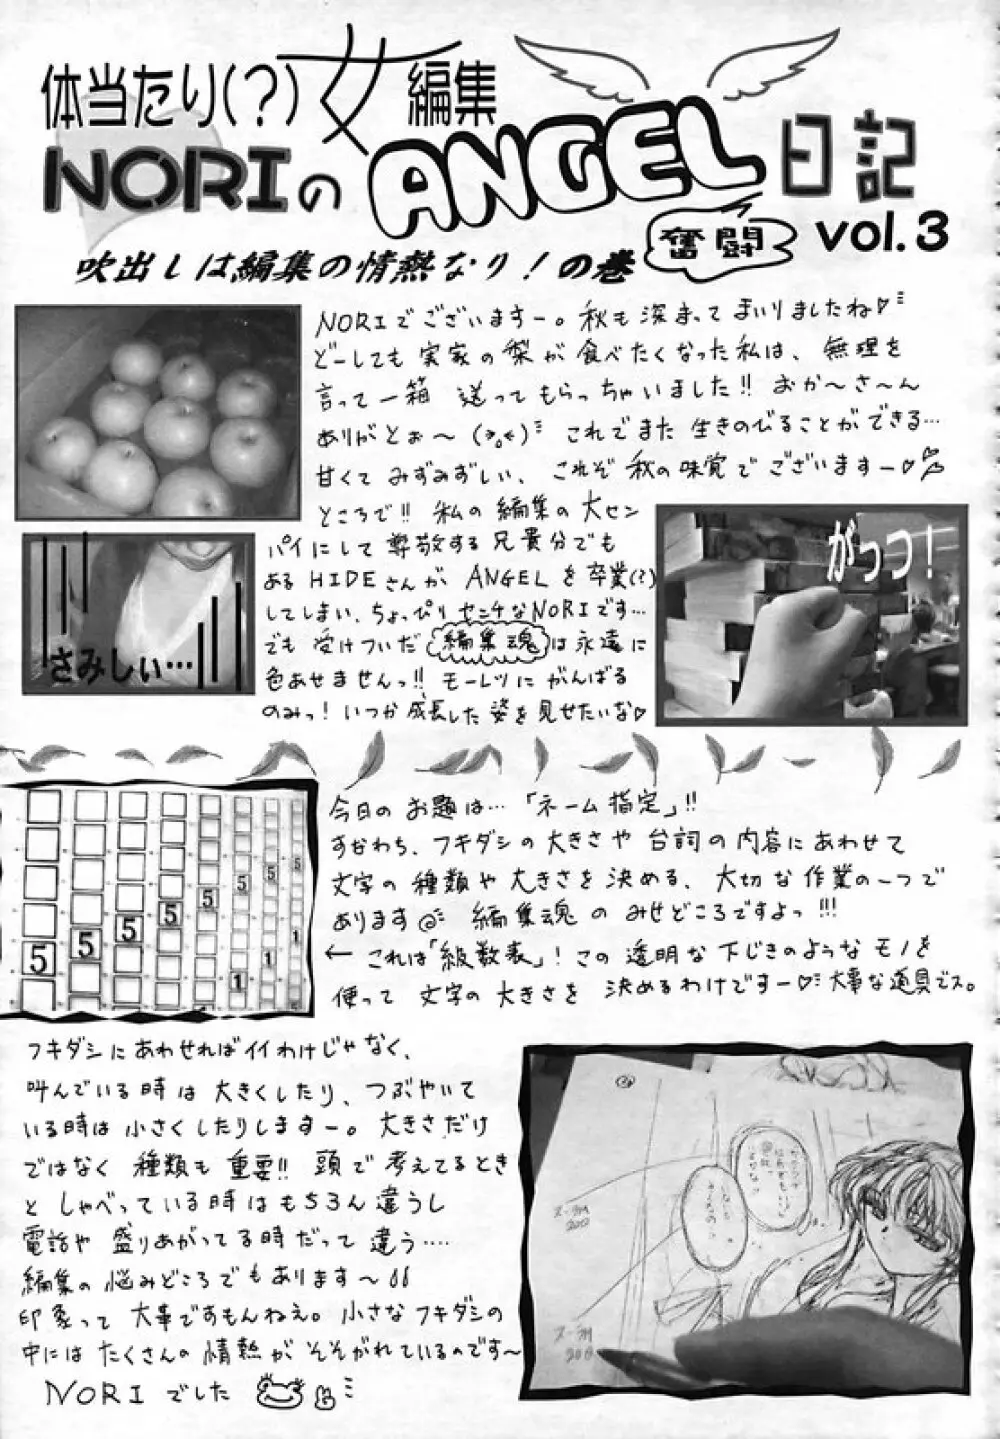 体当たり(?)女編集
NORIのANGEL日記
奮闘
vol.3
吹出しは編集の情熱なり!の巻
NORIでございますー。秋も深まってまいりましたね♡
どーしても実家の梨が食べたくなった私は、無理を
言って一箱送ってもらっちゃいました!! おか〜さ〜ん
ありがとぉ〜 これでまた生きのびることができる…
甘くてみずみずしい、これぞ秋の味覚でございますー♡
ところで!! 私の編集の大セン
パイにして尊敬する兄貴分でも
あるHIDEさんがANGELを卒業(?)
してしまい、ちょっぴりセンチなNORIです…
でも受けついだ編集魂は永遠に
色あせませんっ!! モーレツにがんばる
のみっ! いつか成長した姿を見せたいな♡
さみしい…
がっつ!
今日のお題は…「ネーム指定」!!
すなわち、フキダシの大きさや台詞の内容にあわせて
文字の種類や大きさを決める、大切な作業の一つで
あります 編集魂のみせどころですよっ!!!
← これは「級数表」! この透明な下じきのようなモノを
使って文字の大きさを決めるわけですー♡ 大事な道具でス。
5 5 5 5 5 5 5 5
1 1 1
フキダシにあわせればイイわけじゃなく、
叫んでいる時は大きくしたり、つぶやいて
いる時は小さくしたりしますー。大きさだけ
ではなく種類も重要!! 頭で考えてるとき
としゃべっている時はもちろん違うし
電話や盛りあがってる時だって違う….
編集の悩みどころでもあります〜
印象って大事ですもんねえ。小さなフキダシの
中にはたくさんの情熱がそそがれているのです〜
NORIでした